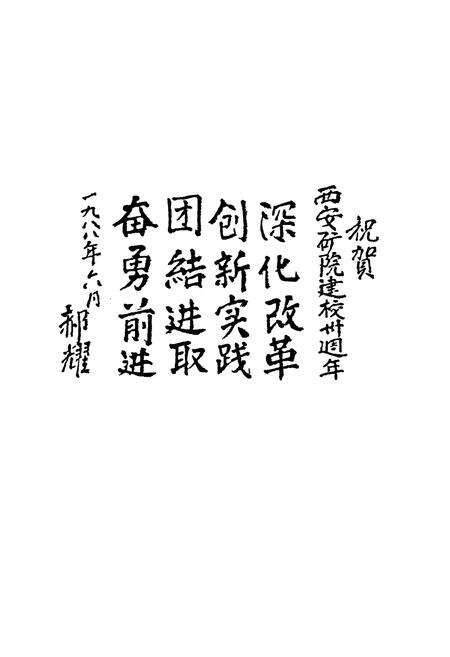 祝賀
西安矿院建校卅週年
深化改革
创新实践
团結进取
奋勇前进
一九八八年六月
郝耀